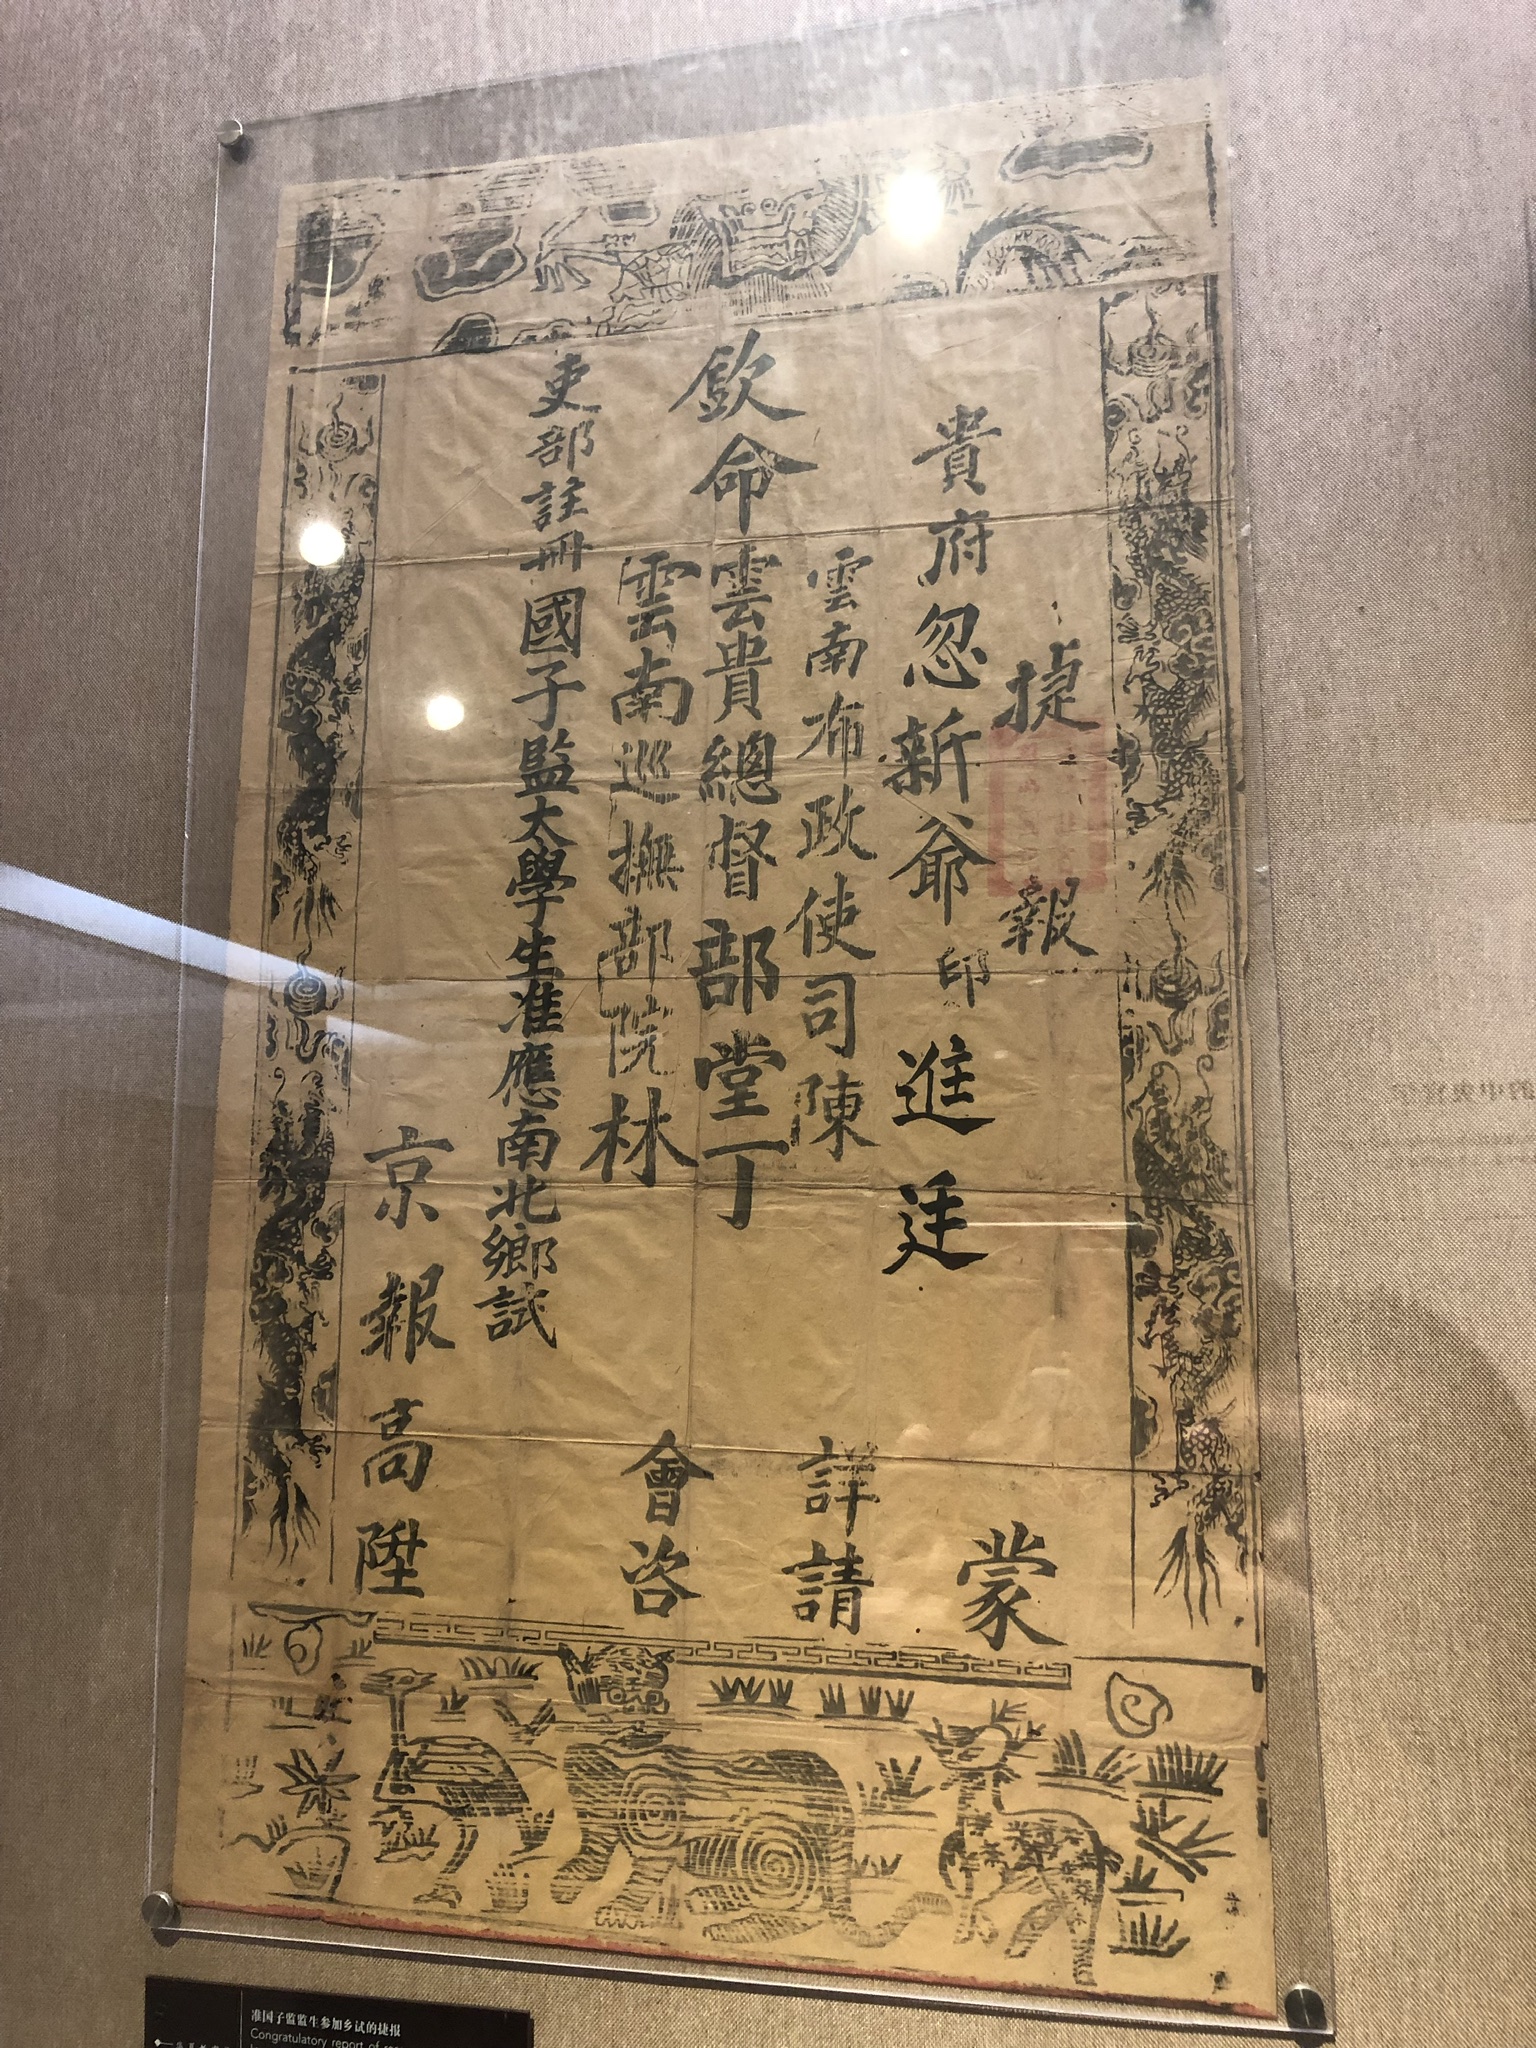 捷報
貴府忽新爺印進廷
蒙
雲南布政使司陳
詳請
欽命雲貴總督部堂丁
雲南巡撫部院林
會咨
吏部註冊國子監太學生准應南北鄉試
京報高陞
准国子监监生参加乡试的捷报
Congratulatory report of